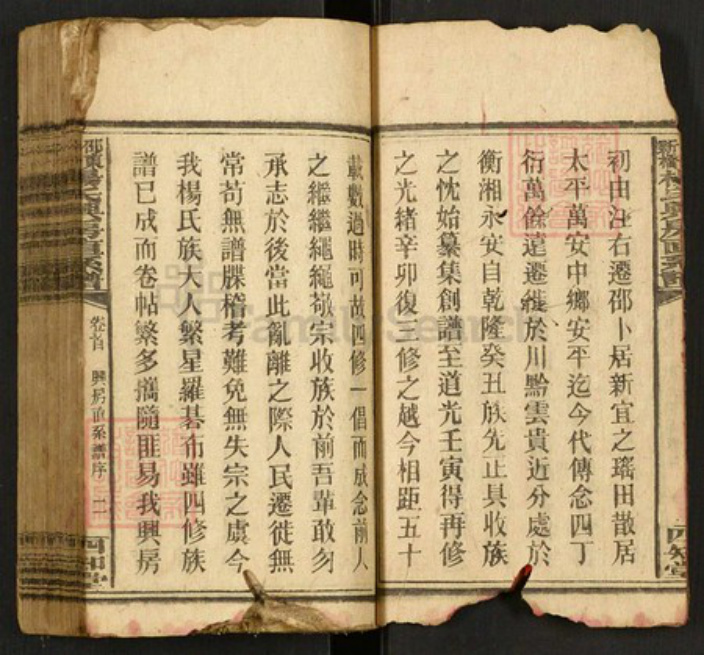 初由江右遷邵卜居新宜之瑤田散居
太平萬安中鄉安平迄今代傳念四丁
衍萬餘達遷雜於川黔雲貴近分處於
衡湘永安自乾隆癸丑族先正具收族
之忱始纂集創譜至道光壬寅得再修
之光緒辛卯復三修之越今相距五十
載數過時可故四修一倡而成念前人
之繼繼繩繩敬宗收族於前吾輩敢勿
承志於後當此亂離之際人民遷徙無
常苟無譜牒稽考難免無失宗之虞今
我楊氏族大人繁星羅碁布雖四修族
譜已成而卷帖繁多攜隨匪易我興房
卷首 興房直系譜序 二
四知堂
FamilySearch